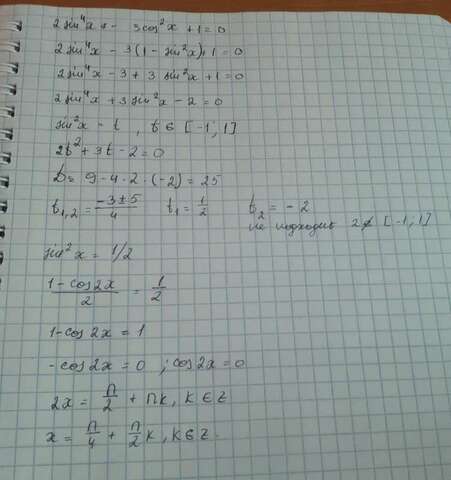 2sin⁴x - 3cos²x + 1 = 0
2sin⁴x - 3(1 - sin²x) + 1 = 0
2sin⁴x - 3 + 3 sin²x + 1 = 0
2sin⁴x + 3sin²x - 2 = 0
sin²x - t, t ∈ [-1; 1]
2t² + 3t - 2 = 0
D = 9 - 4·2·(-2) = 25
t₁,₂ = (-3 ± 5)/4 t₁ = 1/2 t₂ = -2
не подходит 2 ∉ [-1; 1]
sin²x = 1/2
(1 - cos2x)/2 = 1/2
1 - cos2x = 1
-cos2x = 0 ; cos2x = 0
2x = π/2 + πk, k ∈ Z
x = π/4 + π/2 k, k ∈ Z.